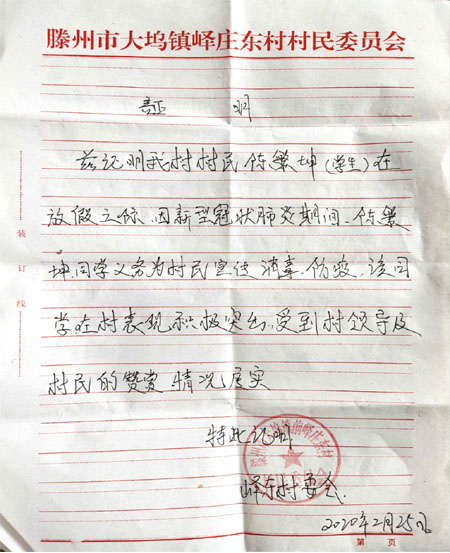 滕州市大坞镇峄庄东村村民委员会
证 明
兹证明我村村民陈繁坤(学生)在
放假之际、因新型冠状肺炎期间、陈繁
坤同学义务为村民宣传消毒、防疫、该同
学在村表现积极突出、受到村领导及
村民的赞赏 情况属实
特此证明
峄东村委会
2020年2月25日
装
订
线
第 页